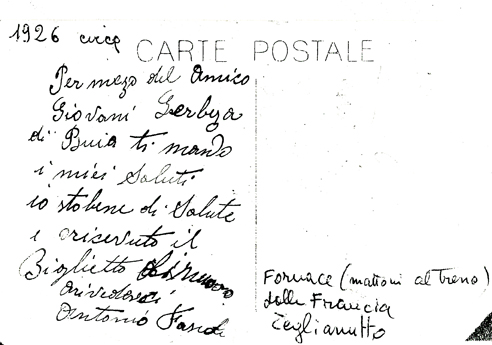 1926 circa
CARTE POSTALE
Per mezo del Amico
Giovani Gerbyza
di Buia ti mando
i miei Saluti
io stobene di Salute
e oricevuto il
Biglietto
arivederci
Antonio
Fornace (mattoni al treno)
dalla Francia
Zeglianutto